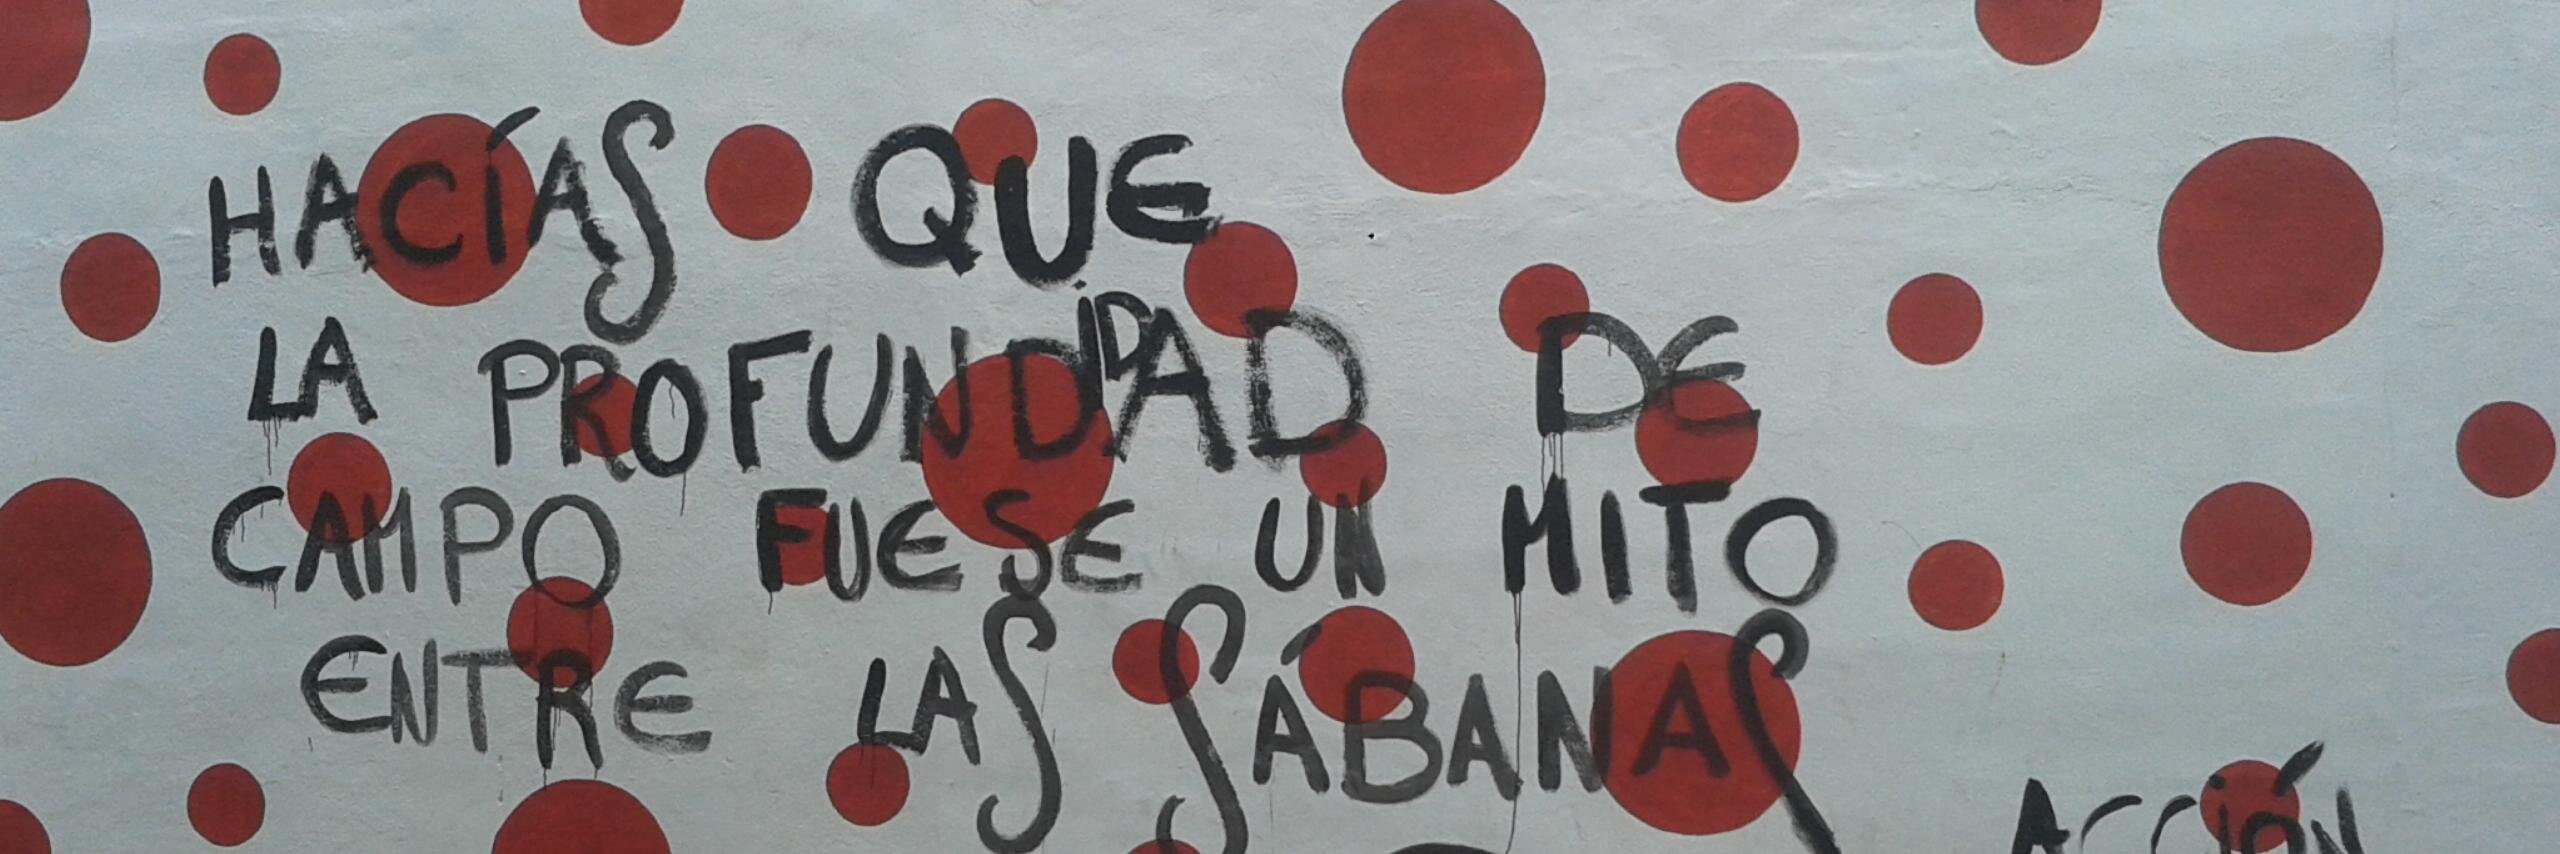 HACÍAS QUE
LA PROFUNDIDAD DE
CAMPO FUESE UN MITO
ENTRE LAS SÁBANAS
ACCIÓN